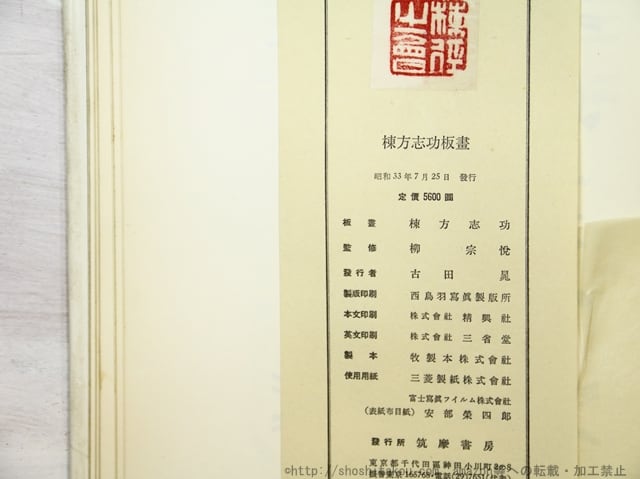 棟方志功板畫
昭和33年7月25日 發行
定價 5600 圓
板畫 棟方志功
監修 柳宗悅
發行者 古田晁
製版印刷 西鳥羽寫眞製版所
本文印刷 株式會社 精興社
英文印刷 株式會社 三省堂
製本 牧製本株式會社
使用用紙 三菱製紙株式會社
富士寫眞フイルム株式會社
(表紙布目紙) 安部榮四郎
發行所 筑摩書房
東京都千代田區神田小川町2の8
振替東京165768・電話(29)7651(代表)
©http://shoshibakou.com
への転載・加工禁止